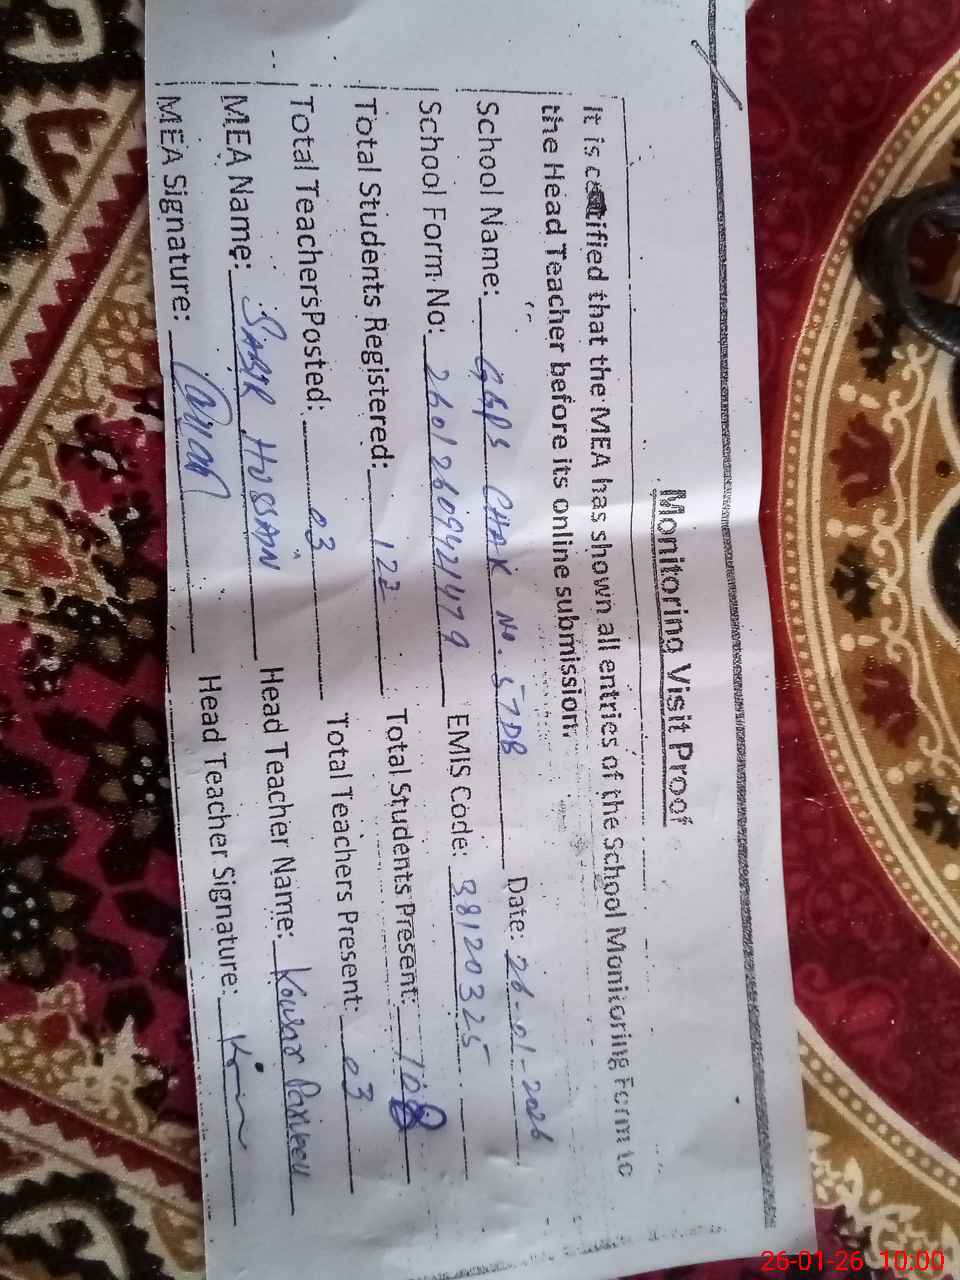 Monitoring Visit Proof
It is certified that the MEA has shown all entries of the School Monitoring Form to
the Head Teacher before its online submission.
School Name: GGPS CHAK No. 57DB Date: 26-01-2026
School Form No: 2601260942479 EMIS Code: 38120325
Total Students Registered: 123 Total Students Present: 108
Total Teachers Posted: 03 Total Teachers Present: 03
MEA Name: SABIR HUSSAN Head Teacher Name: Kousar Parveen
MEA Signature: Head Teacher Signature:
26-01-26 10:00